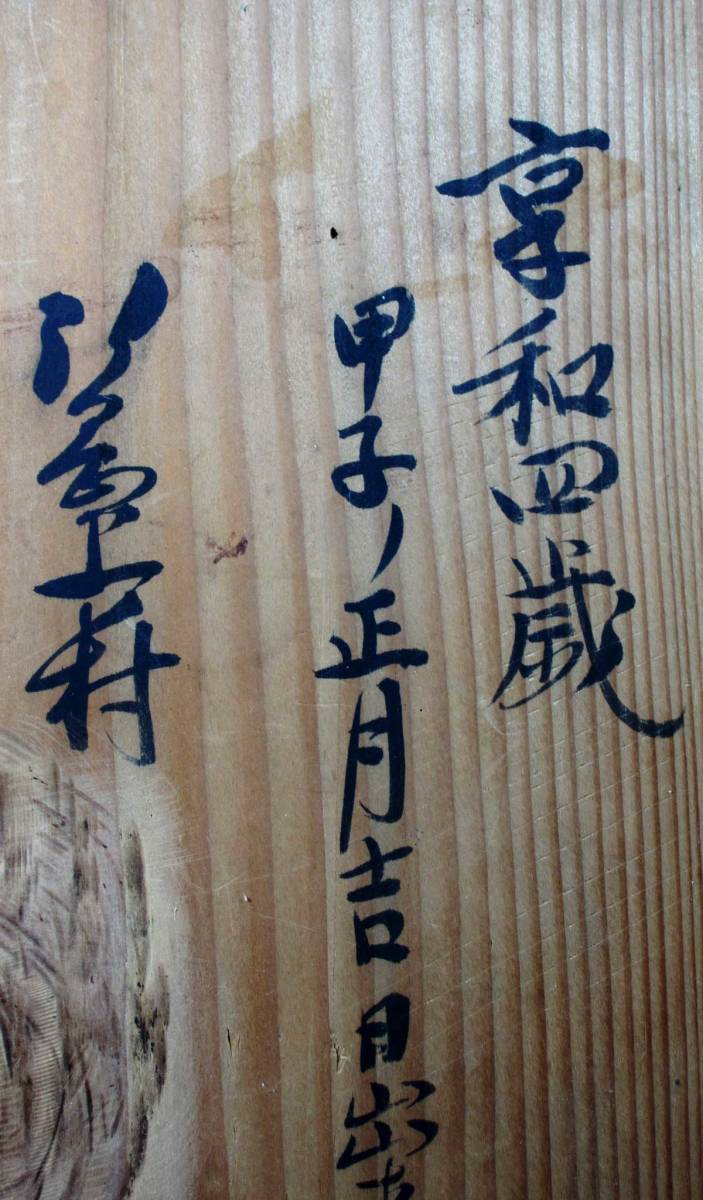 享和四歳
甲子ノ正月吉日出
上村